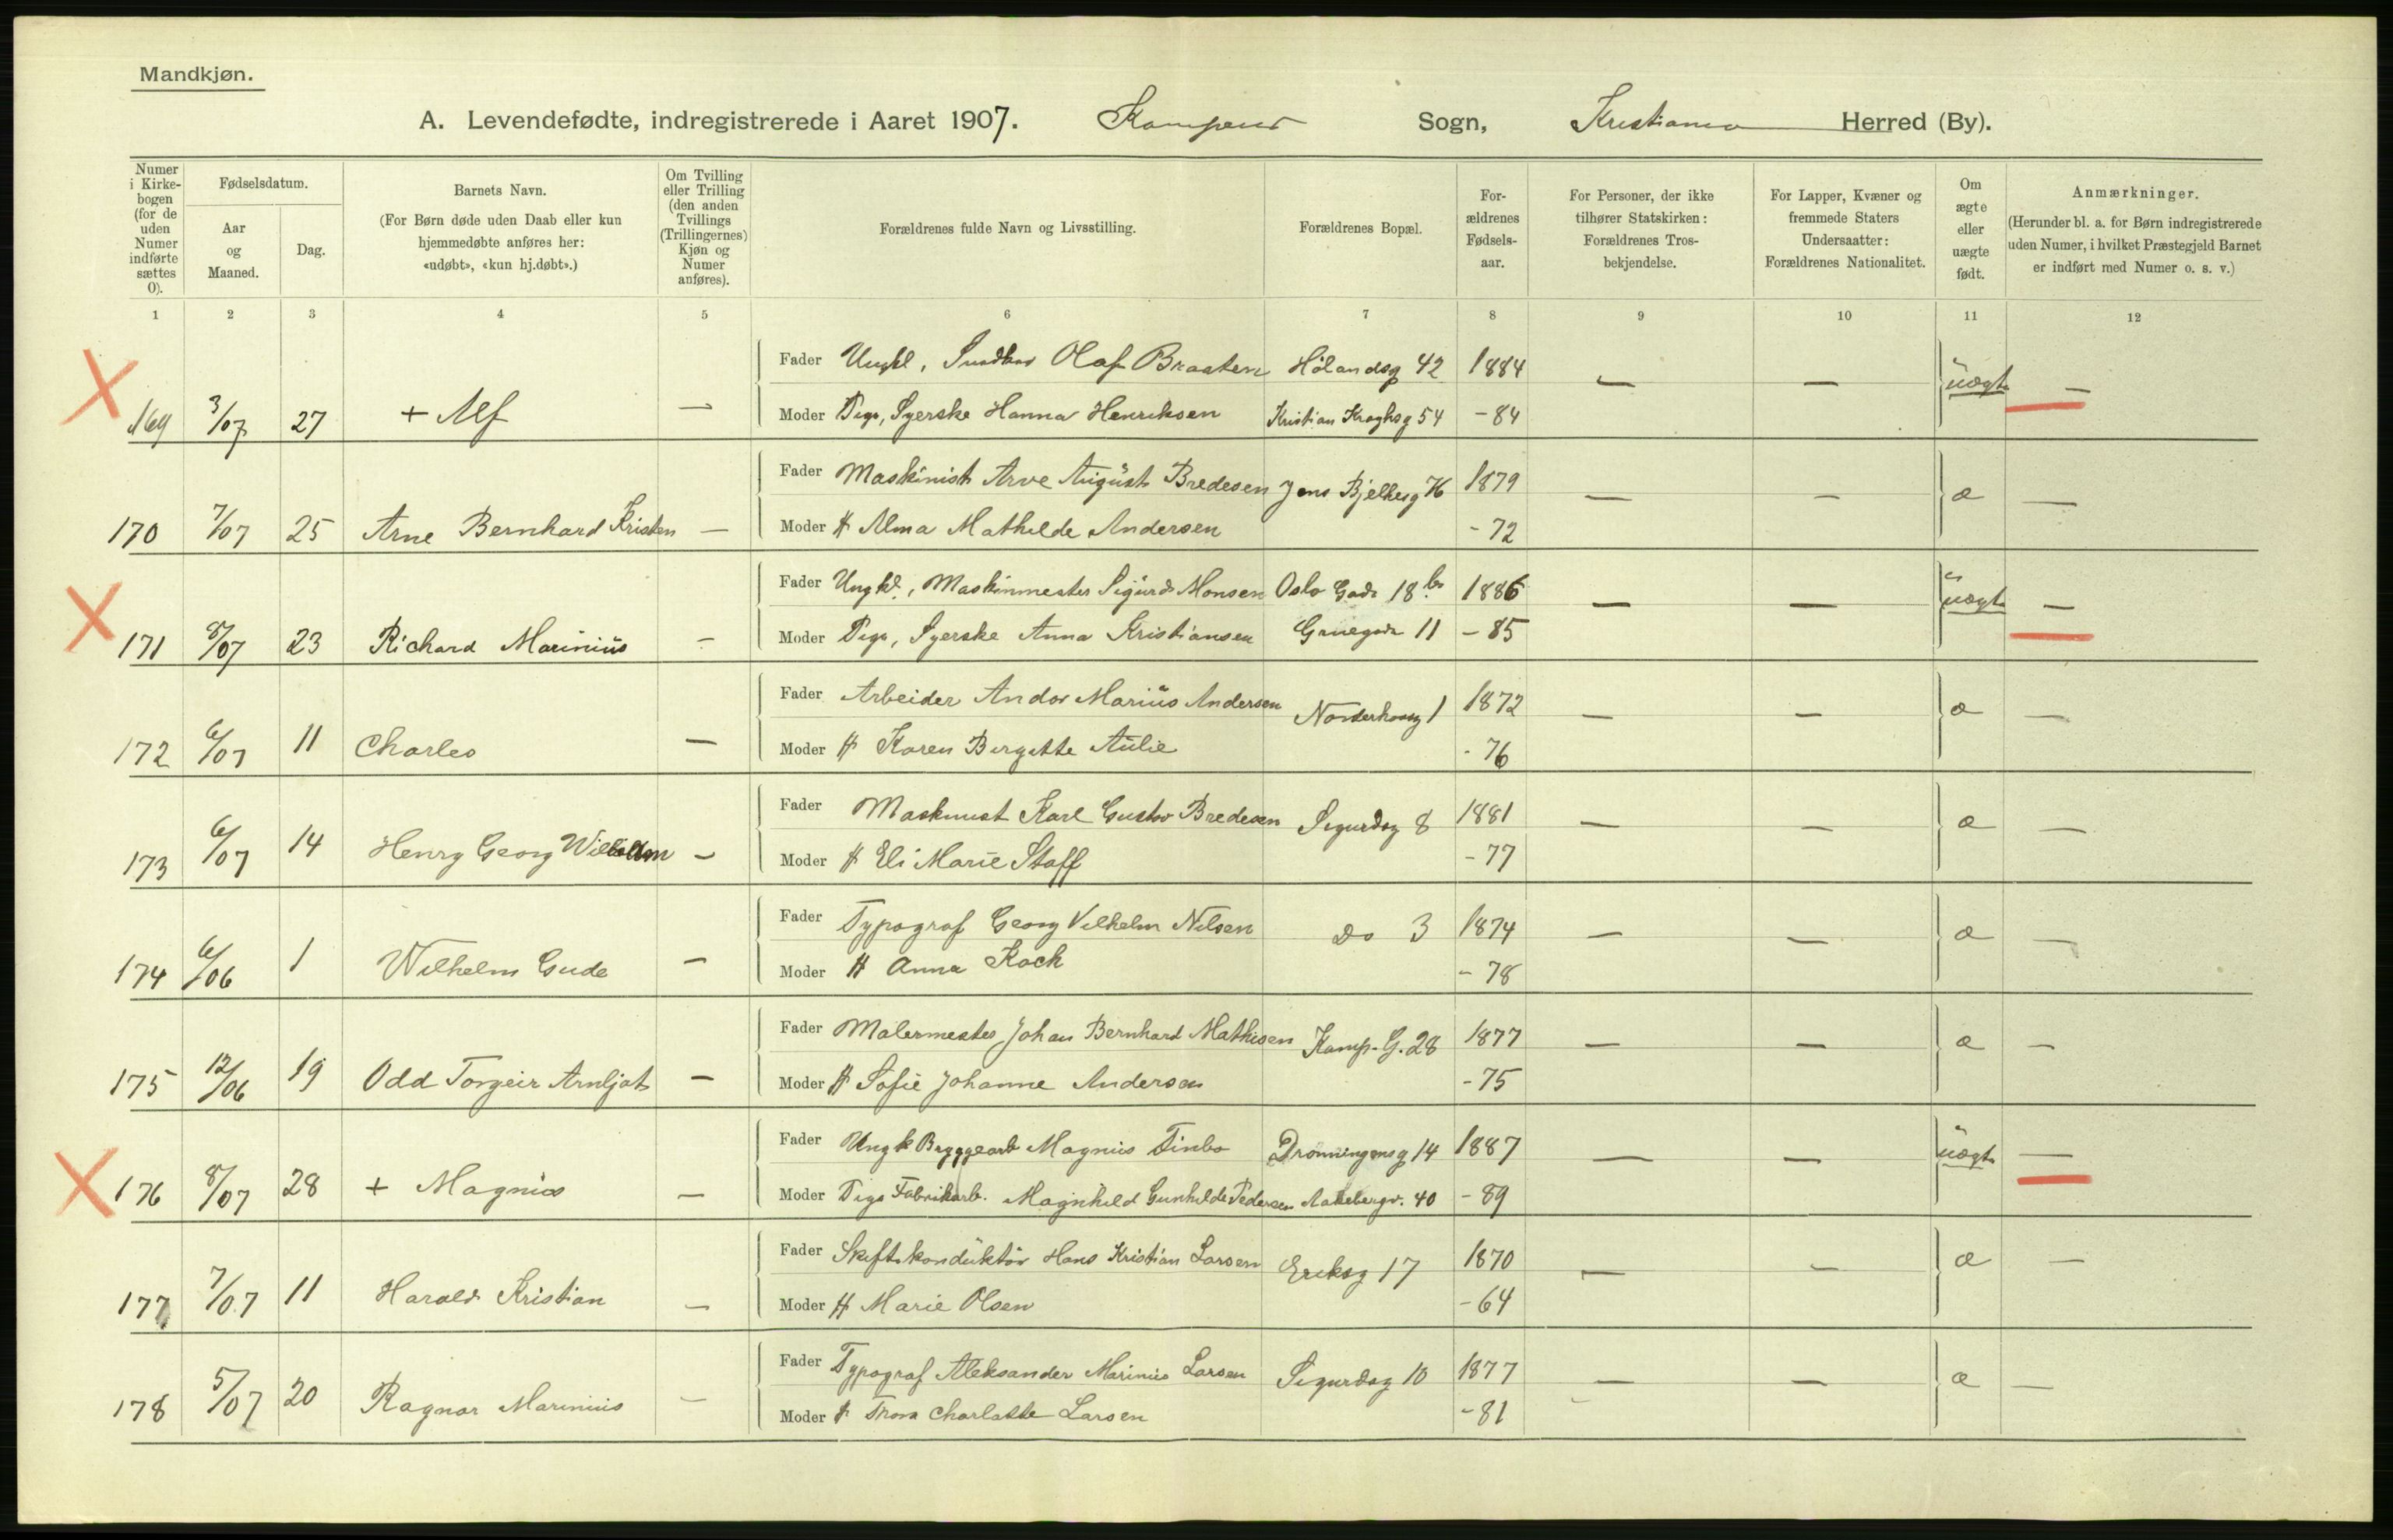 Mandkjøn.
A. Levendefødte, indregistrerede i Aaret 1907. Kampens Sogn, Kristiania Herred (By).
Numer i Kirkebogen (for de uden Numer indførte sættes 0).
Fødselsdatum.
Aar og Maaned.
Dag.
Barnets Navn.
(For Børn døde uden Daab eller kun hjemmedøbte anføres her: «udøbt», «kun hj.døbt».)
Om Tvilling eller Trilling (den anden Tvillings (Trillingernes) Kjøn og Numer anføres).
Forældrenes fulde Navn og Livsstilling.
Forældrenes Bopæl.
Forældrenes Fødselsaar.
For Personer, der ikke tilhører Statskirken: Forældrenes Trosbekjendelse.
For Lapper, Kvæner og fremmede Staters Undersaatter: Forældrenes Nationalitet.
Om ægte eller uægte født.
Anmærkninger.
(Herunder bl. a. for Børn indregistrerede uden Numer, i hvilket Præstegjeld Barnet er indført med Numer o. s. v.)
1 2 3 4 5 6 7 8 9 10 11 12
Fader Ungkl, Olaf Braaten Hølandsg 42 1884 — — uægte —
169 3/07 27 + Alf — Moder Pige, Syerske Hanna Henriksen Kristian Kroghsg 54 - 84
Fader Maskinist Arve August Bredesen Jens Bjelkesg 76 1879 — — æ —
170 7/07 25 Arne Bernhard Kristen — Moder H Alma Mathilde Andersen - 72
Fader Ungk., Maskinmester Sigurd Monsen Oslo Gade 18 b 1886 — — uægte —
171 8/07 23 Richard Marinius — Moder Pige, Syerske Anna Kristiansen Grønegade 11 - 85
Fader Arbeider Andor Marius Andersen Norderhovg 1 1872 — — æ —
172 6/07 11 Charles — Moder H Karen Birgitte Aulie - 76
Fader Maskinist Karl Gustav Bredesen Sigurdsg 8 1881 — — æ —
173 6/07 14 Henry Georg Wilhelm — Moder H Eli Marie Staff - 77
Fader Typograf Georg Vilhelm Nilsen Do 3 1874 — — æ —
174 6/06 1 Wilhelm Gude — Moder H Anna Koch - 78
Fader Malermester Johan Bernhard Mathisen Kamp. G. 28 1877 — — æ —
175 12/06 19 Odd Torgeir Arnljot — Moder H Sofie Johanne Andersen - 75
Fader Ungk Bryggearb Magnus Finbo Dronningensg 14 1887 — — uægte —
176 8/07 28 + Magnus — Moder Pige Fabrikarb. Magnhild Gunhilde Pedersen Aakebergv. 40 - 89
Fader Skiftekonduktør Hans Kristian Larsen Eriksg 17 1870 — — æ —
177 7/07 11 Harald Kristian — Moder H Marie Olsen - 64
Fader Typograf Aleksander Marinius Larsen Sigurdsg 10 1877 — — æ —
178 5/07 20 Ragnar Marinius — Moder H Thora Charlotte Larsen - 81